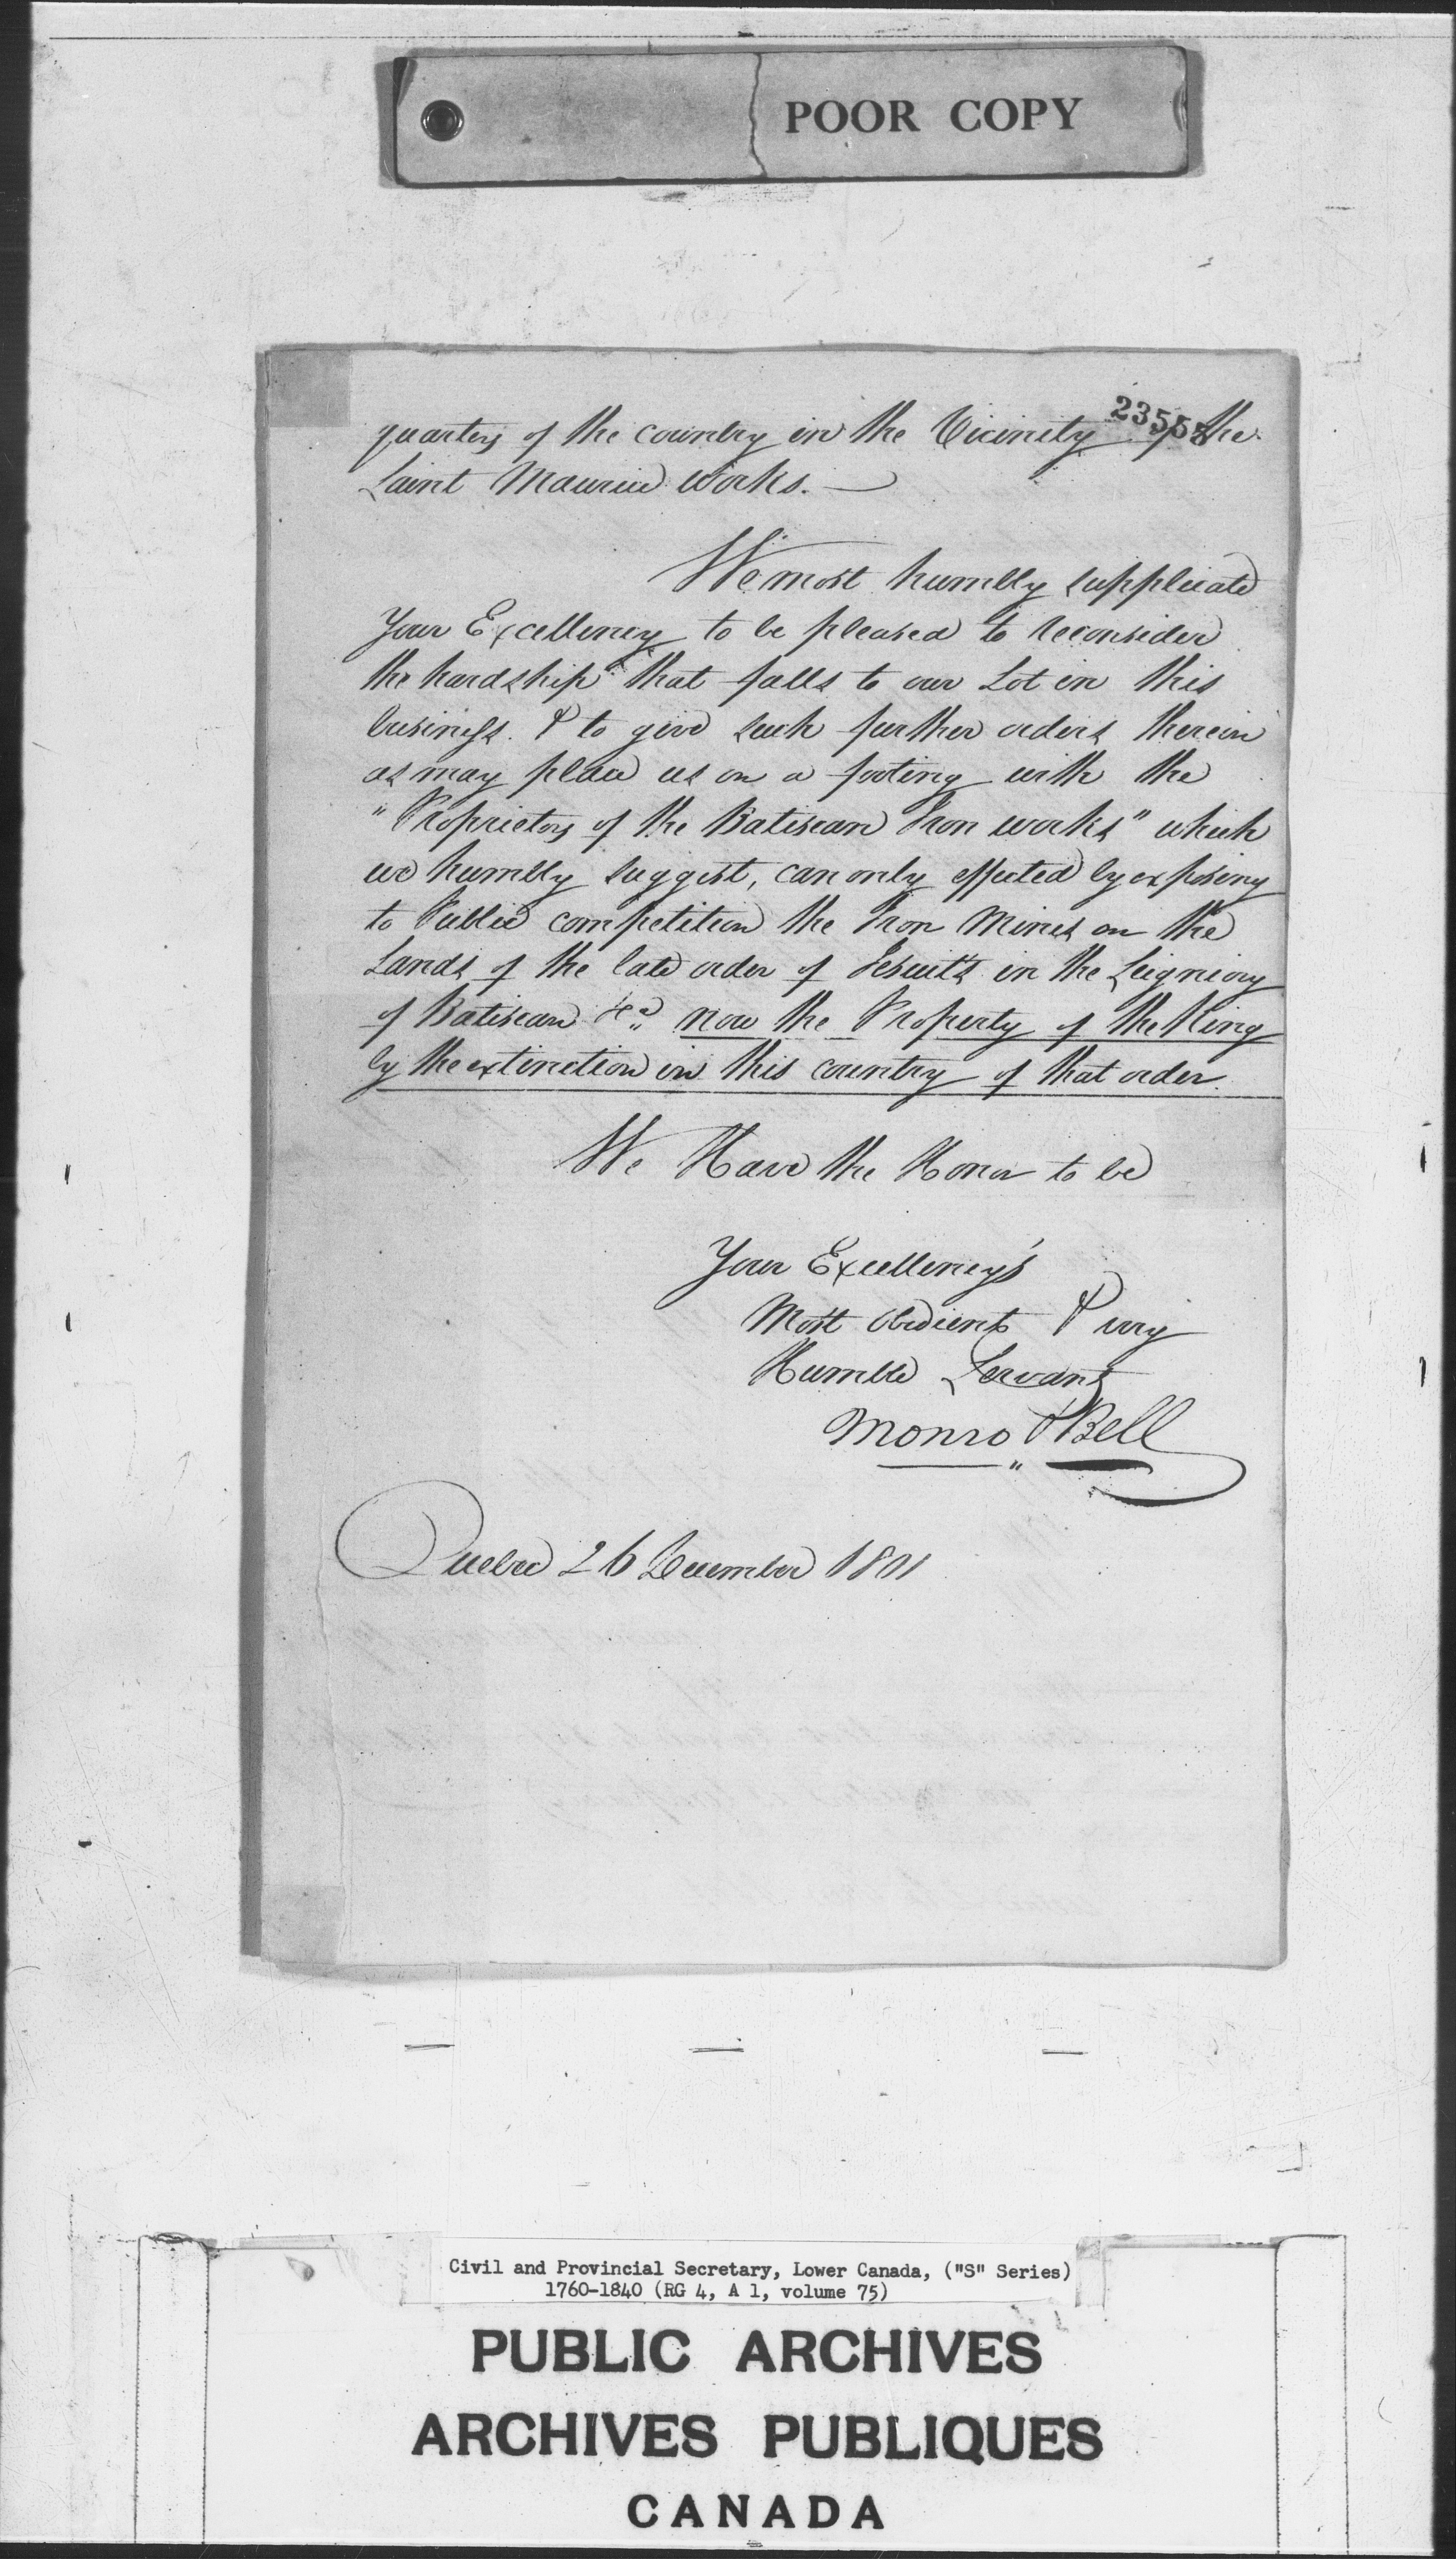 POOR COPY
23555
quarters of the country in the Vicinity of the
Saint Maurice Works. —
We most humbly supplicate
Your Excellency to be pleased to reconsider
the hardship that falls to our Lot in this
business. & to give such further orders therein
as may place us on a footing with the
"Proprietors of the Batiscan Iron works" which
we humbly suggest, can only effected by exposing
to Public competition the Iron Mines on the
Lands of the late order of Jesuits in the Seigniory
of Batiscan &ca. now the Property of the King
by the extinction in this country of that order.
We Have the Honor to be
Your Excellency's
Most Obedient & very
Humble Servants
Monro & Bell
Quebec 26 December 1801
Civil and Provincial Secretary, Lower Canada, ("S" Series)
1760-1840 (RG 4, A 1, volume 75)
PUBLIC ARCHIVES
ARCHIVES PUBLIQUES
CANADA